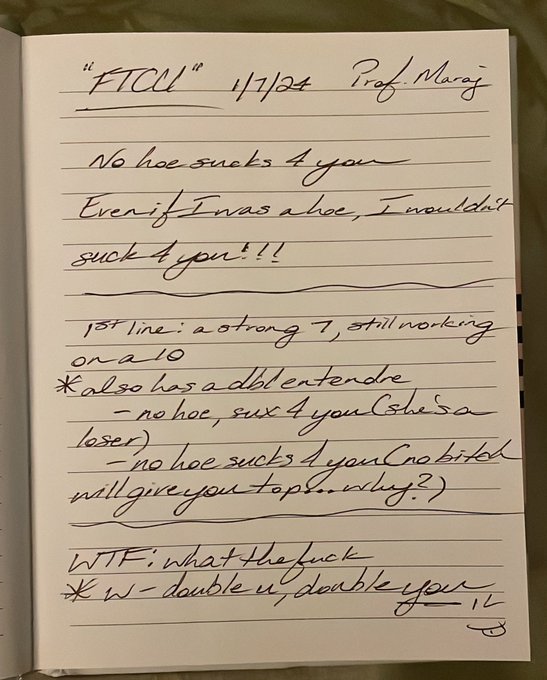 "FTCU" 1/7/24 Prof. Maraj
No hoe sucks 4 you
Even if I was a hoe, I wouldn't
suck 4 you!!!
1st line: a strong 7, still working
on a 10
* also has a dbl entendre
- no hoe, sux 4 you (she's a
loser)
- no hoe sucks 4 you (no bitch
will give you top... why?)
WTF: what the fuck
* W - double u, double you